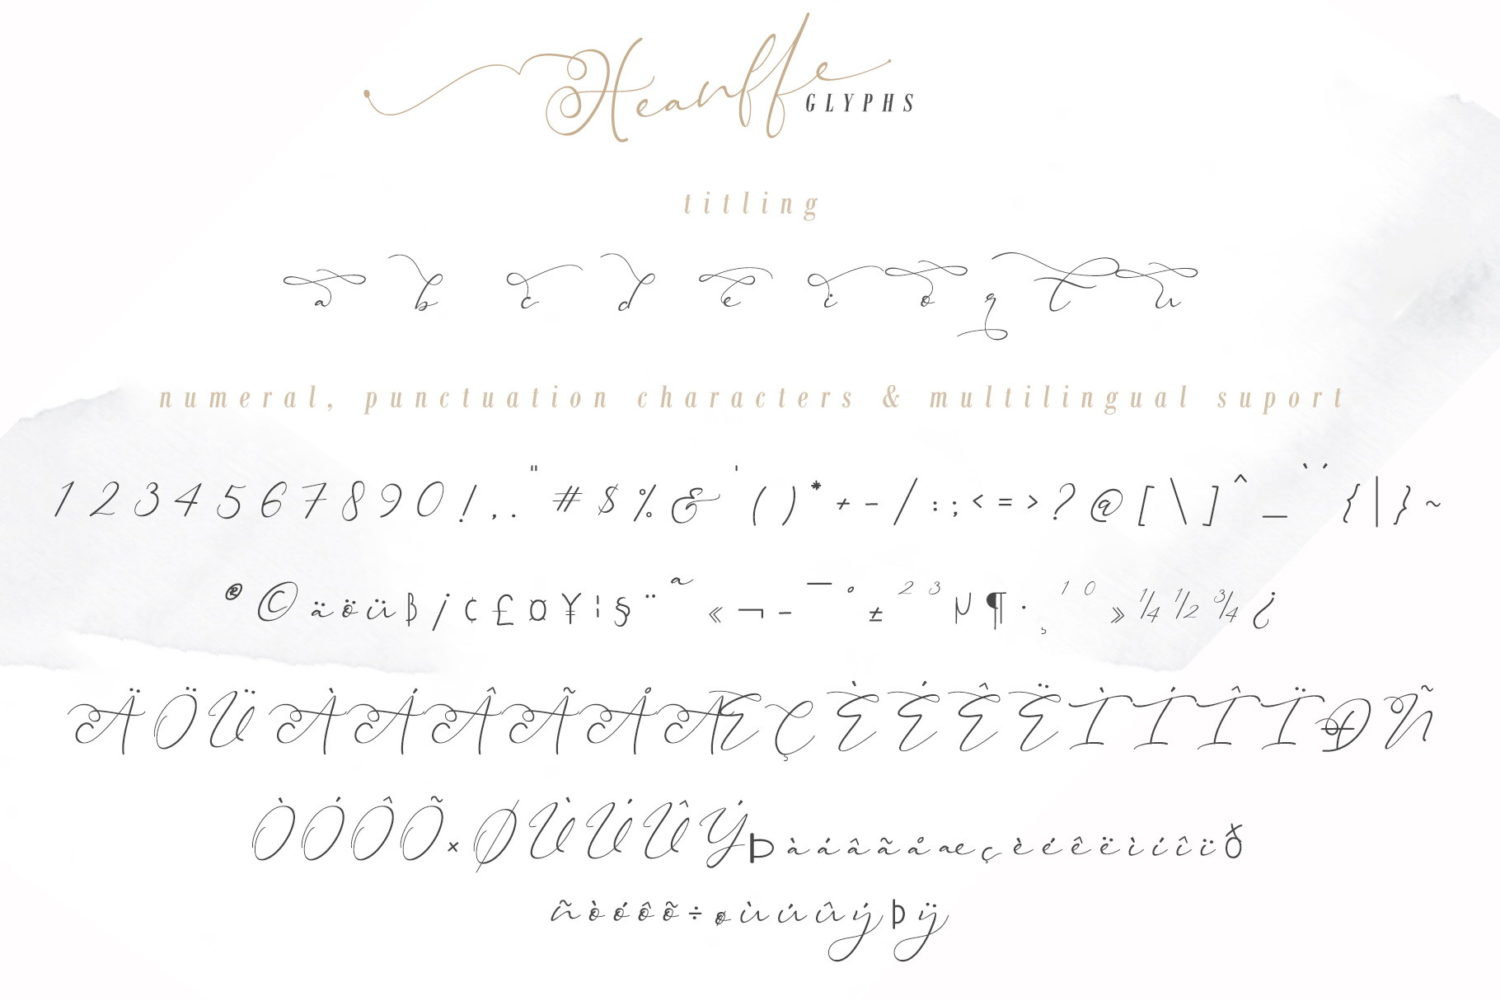 Heanffe GLYPHS
titling
a b c d e i o r t u
numeral, punctuation characters & multilingual suport
1 2 3 4 5 6 7 8 9 0 ! , . " # $ % & ' ( ) * + - / : ; < = > ? @ [ \ ] ^ _ ` ´ { | } ~
® © ä ö ü β / ¢ £ ¤ ¥ ¦ § ¨ ª « ¬ - ¯ ° ± ² ³ µ ¶ · ¸ ¹ º » ¼ ½ ¾ ¿
Ä Ö Ü À Á Â Ã Å Æ Ç È É Ê Ë Ì Í Î Ï Ð Ñ
Ò Ó Ô Õ × Ø Ù Ú Û Ý Þ à á â ã å æ ç è é ê ë ì í î ï ð
ñ ò ó ô õ ÷ ø ù ú û ý þ ÿ